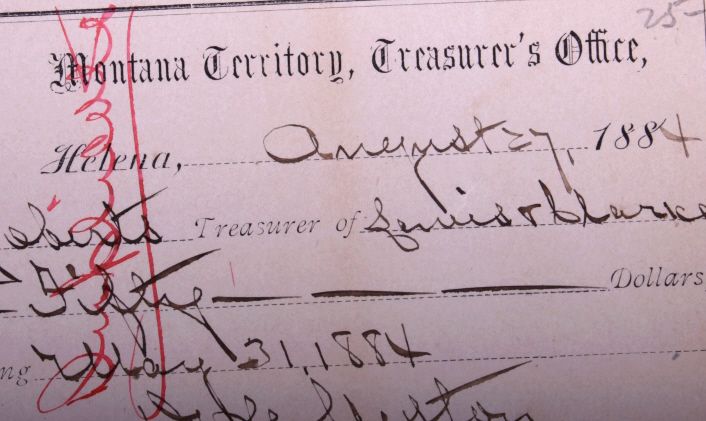 25-
Montana Territory, Treasurer's Office,
Helena, August 27, 1884
oberts Treasurer of Lewis & Clarke
Fifty Dollars
ng May 31, 1884